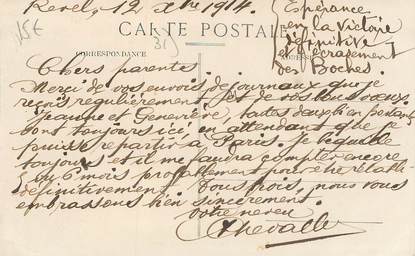 Revel, 12 Xbre 1914.
Espérance
en la Victoire
définitive
et écrasement
des Boches.
15€
31)
CARTE POSTALE
CORRESPONDANCE
Chers parents
Merci de vos envois de journaux que je
reçois régulièrement et de vos bons voeux.
Jeanne et Geneviève, toutes deux bien portantes
sont toujours ici, en attendant que je
puisse repartir à Paris. Je béquille
toujours et il me faudra compter encore
5 ou 6 mois probablement pour être rétabli
définitivement. Tous trois, nous vous
embrassons bien sincèrement.
Votre neveu
Chevallier